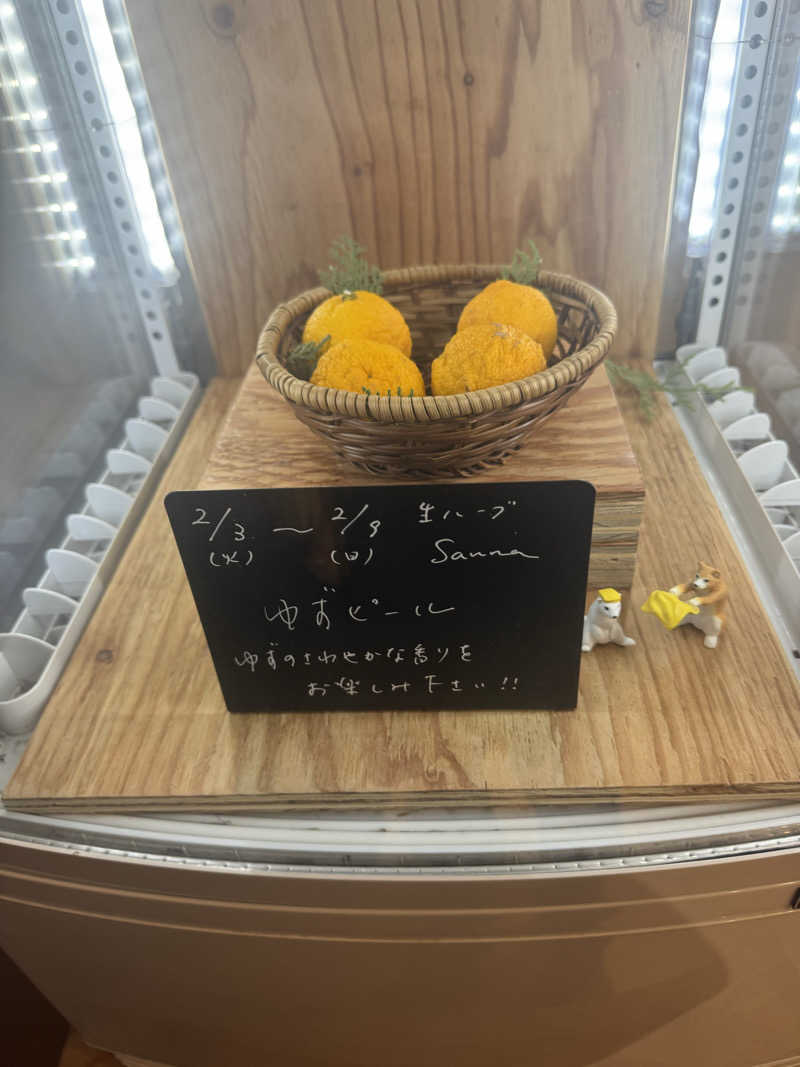 2/3 〜 2/9 生ハーブ
(火) (日) Sauna
ゆずピール
ゆずのさわやかな香りを
お楽しみ下さい!!